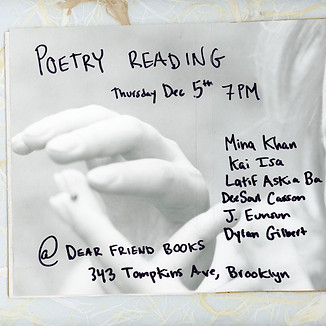 POETRY READING
Thursday Dec 5th 7PM
Mina Khan
Kai Isa
Latif Askia Ba
DeeSoul Carson
J. Eunsun
Dylan Gilbert
@ DEAR FRIEND BOOKS
343 Tompkins Ave, Brooklyn